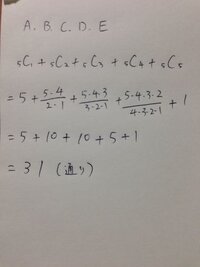 A. B. C. D. E
₅C₁ + ₅C₂ + ₅C₃ + ₅C₄ + ₅C₅
= 5 + 5·4/2·1 + 5·4·3/3·2·1 + 5·4·3·2/4·3·2·1 + 1
= 5 + 10 + 10 + 5 + 1
= 31 (通り)